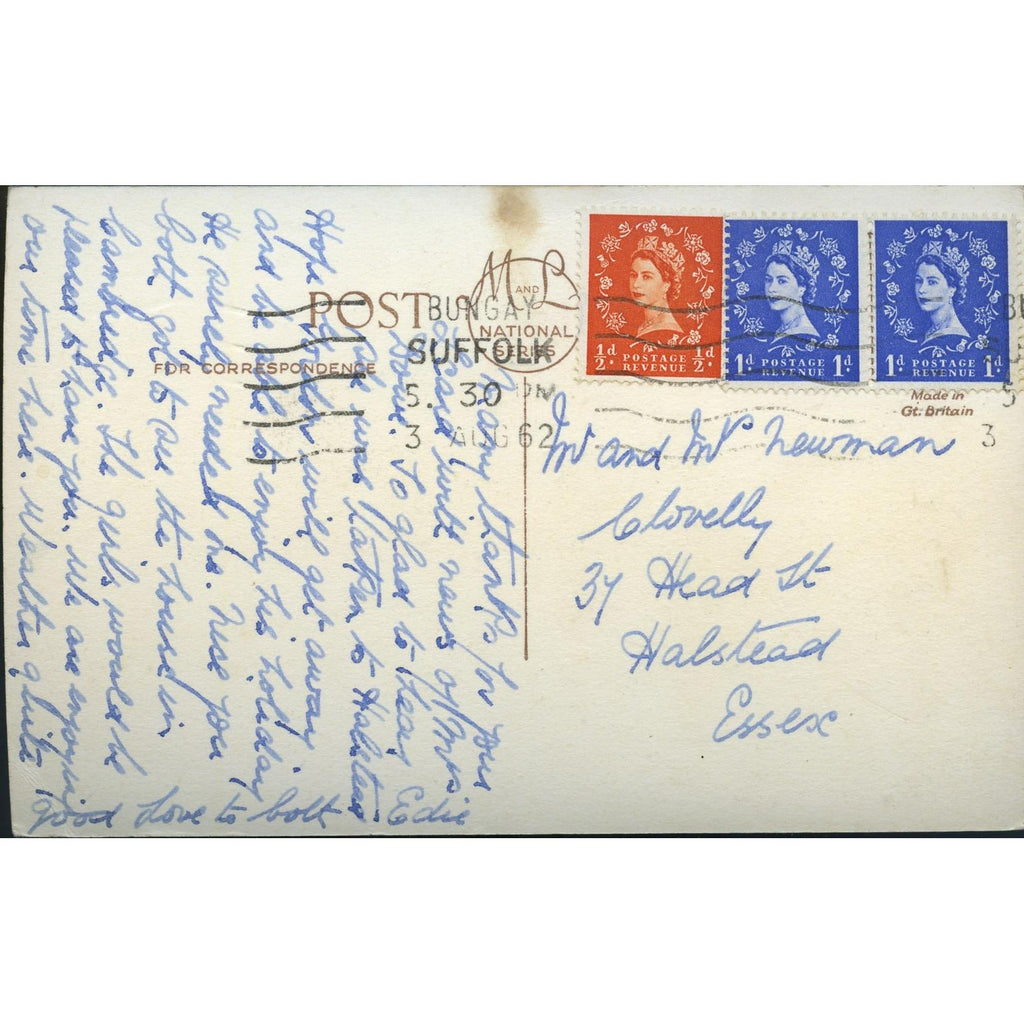 POST
FOR CORRESPONDENCE
M AND L
NATIONAL
SERIES
BUNGAY
SUFFOLK
5. 30 PM
3 AUG 62
½d POSTAGE REVENUE ½d
1d POSTAGE REVENUE 1d
1d POSTAGE REVENUE 1d
Made in
Gt. Britain
BU
S
5
3
Mr and Mrs Newman
Clovelly
37 Head St
Halstead
Essex
Many thanks for your
with news of Mrs
So glad to hear
she was taken to Halstead
Hope will get away
and be able to enjoy his holiday
He surely needs one. Nice you
both got to see the in
Cambridge. The girls would be
pleased to have you. We are enjoying
our time here. Weather quite
good Love to both Edie